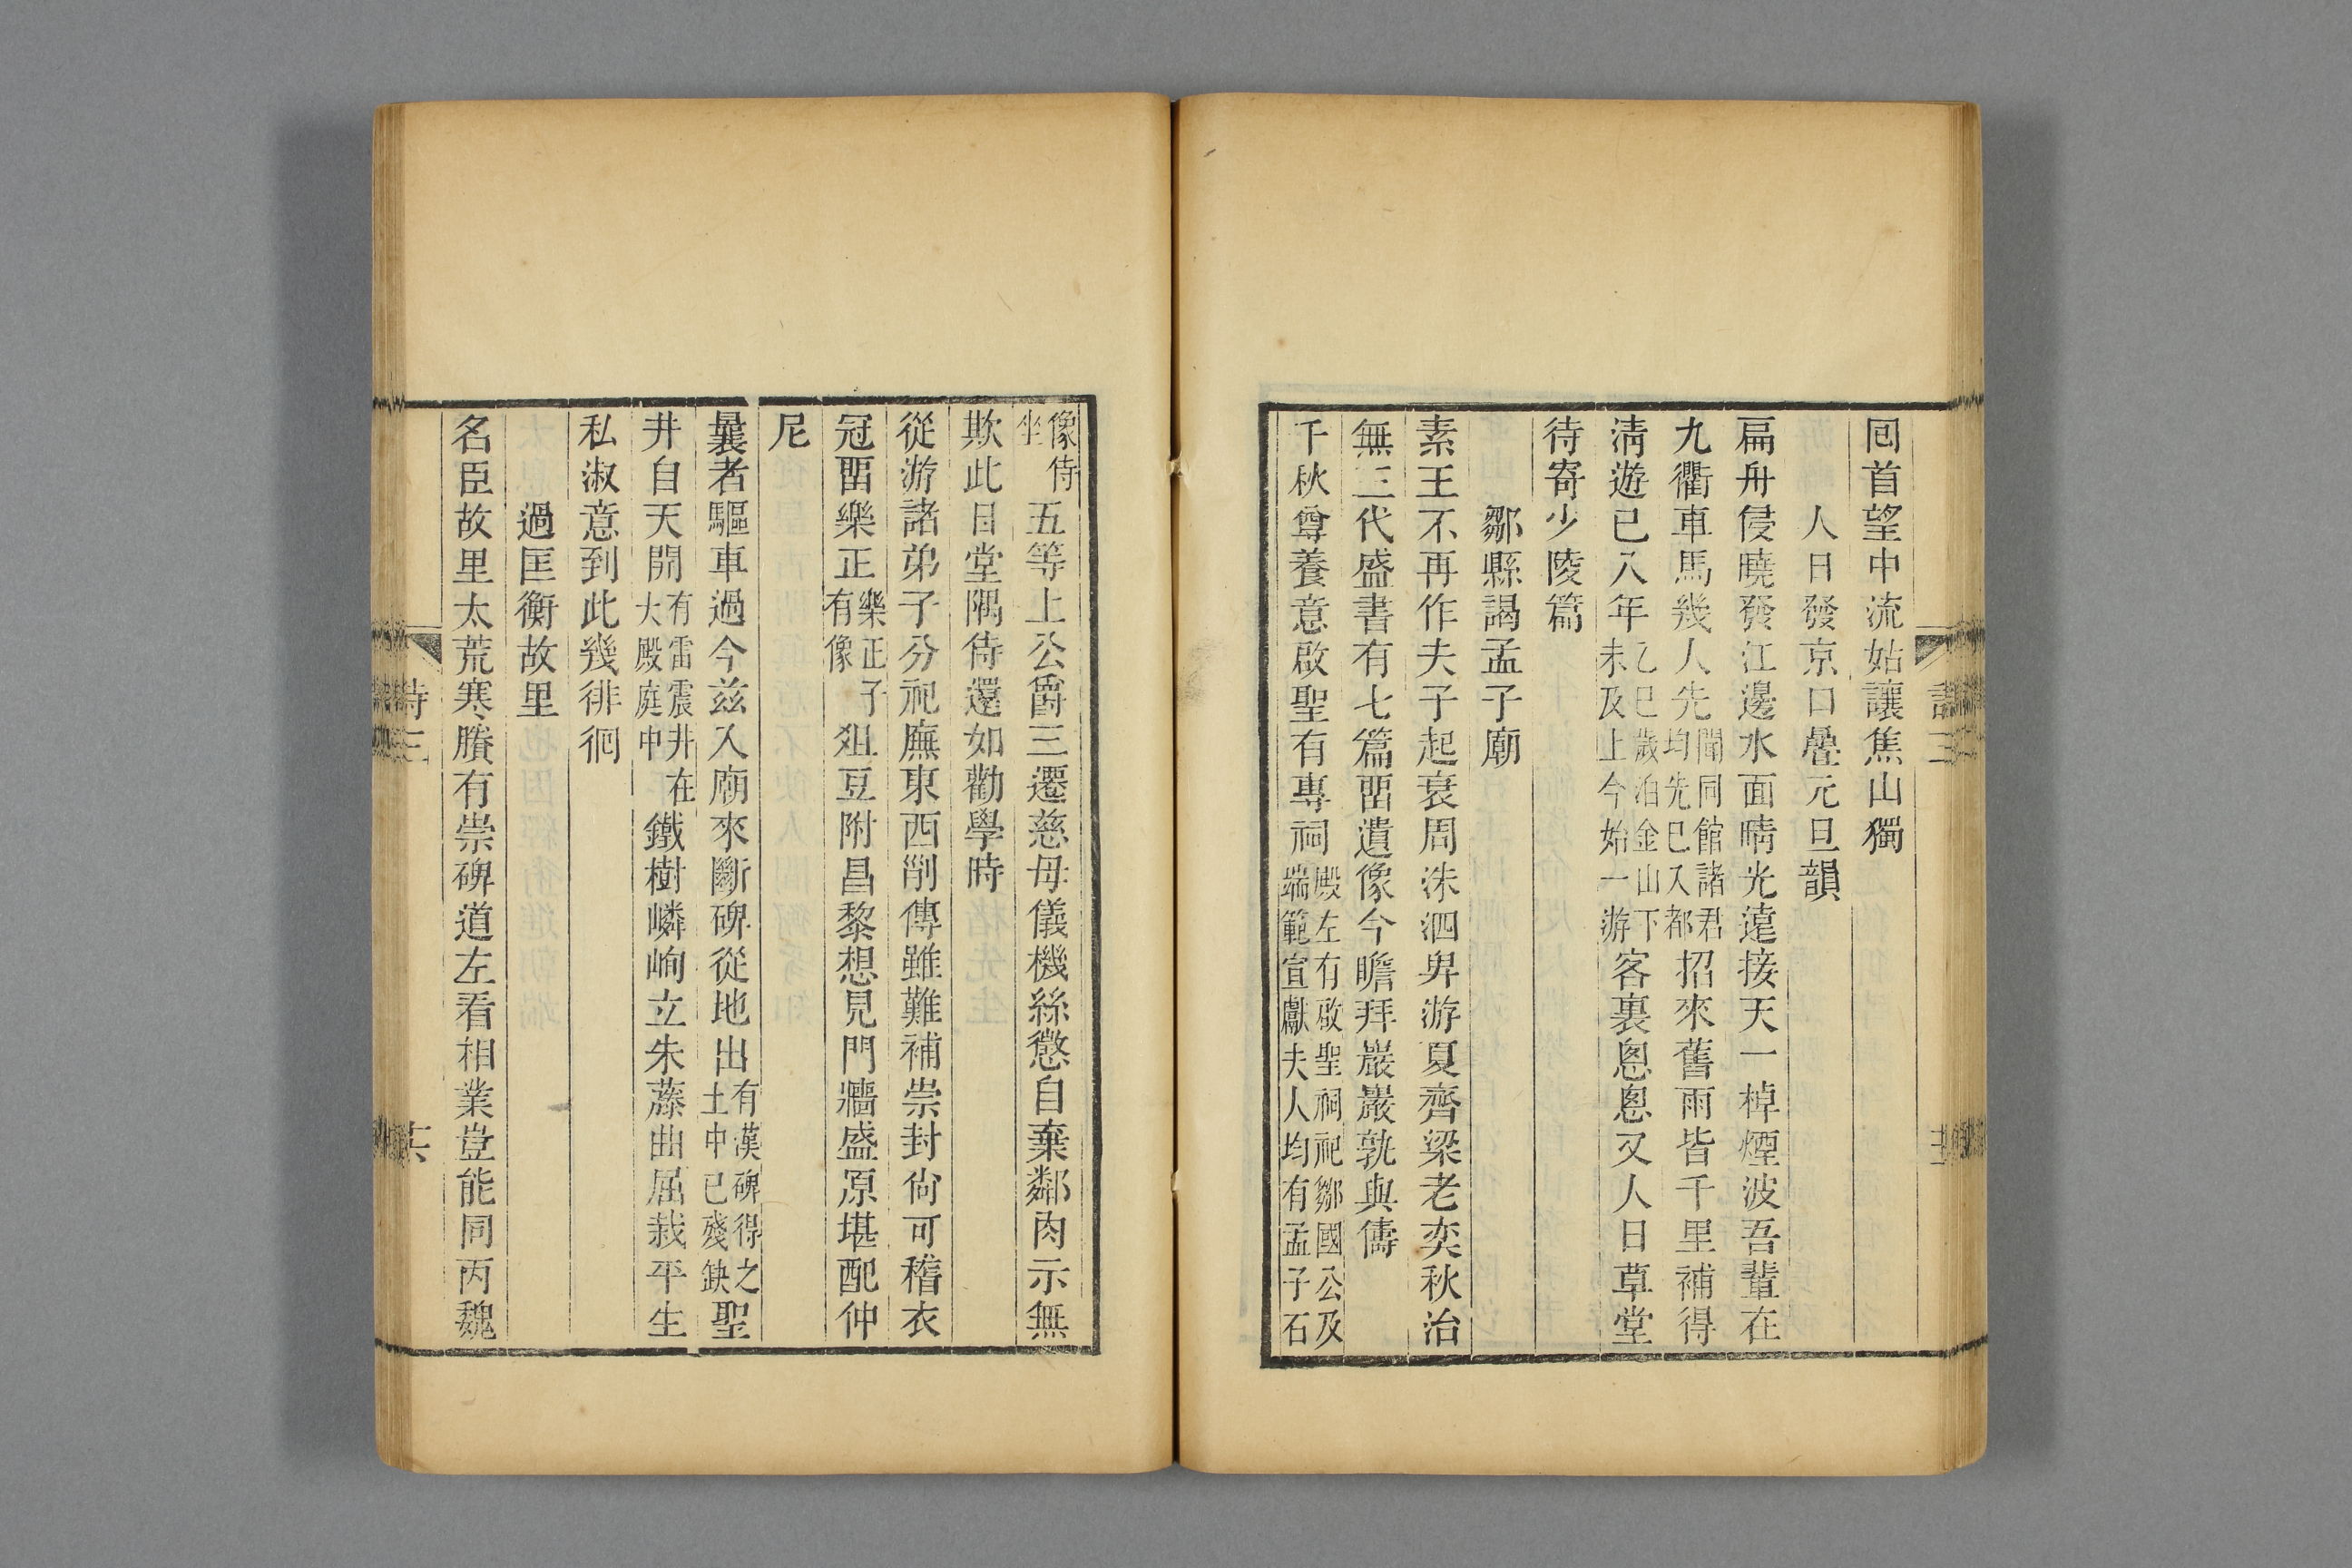 回首望中流姑讓焦山獨
人日發京口疊元旦韻
扁舟侵曉發江邊水面晴光遠接天一棹煙波吾輩在
九衢車馬幾人先聞同館諸君均先已入都招來舊雨皆千里補得
淸遊已八年乙巳歲泊金山下未及上今始一游客裏悤悤又人日草堂
待寄少陵篇
鄒縣謁孟子廟
素王不再作夫子起衰周洙泗舁游夏齊梁老奕秋治
無三代盛書有七篇畱遺像今瞻拜巖巖孰與儔
千秋尊養意啟聖有專祠殿左有啟聖祠祀鄒國公及端範宣獻夫人均有孟子石
像侍坐五等上公爵三遷慈母儀機絲懲自棄鄰肉示無
欺此日堂隅侍還如勸學時
從游諸弟子分祀廡東西削傳雖難補崇封尙可稽衣
冠畱樂正樂正子有像俎豆附昌黎想見門牆盛原堪配仲
尼
曩者驅車過今兹入廟來斷碑從地出有漢碑得之土中已殘缺聖
井自天開有雷震井在大殿庭中鐵樹嶙峋立朱藤曲屈栽平生
私淑意到此幾徘徊
過匡衡故里
名臣故里太荒寒賸有崇碑道左看相業豈能同丙魏
詩三